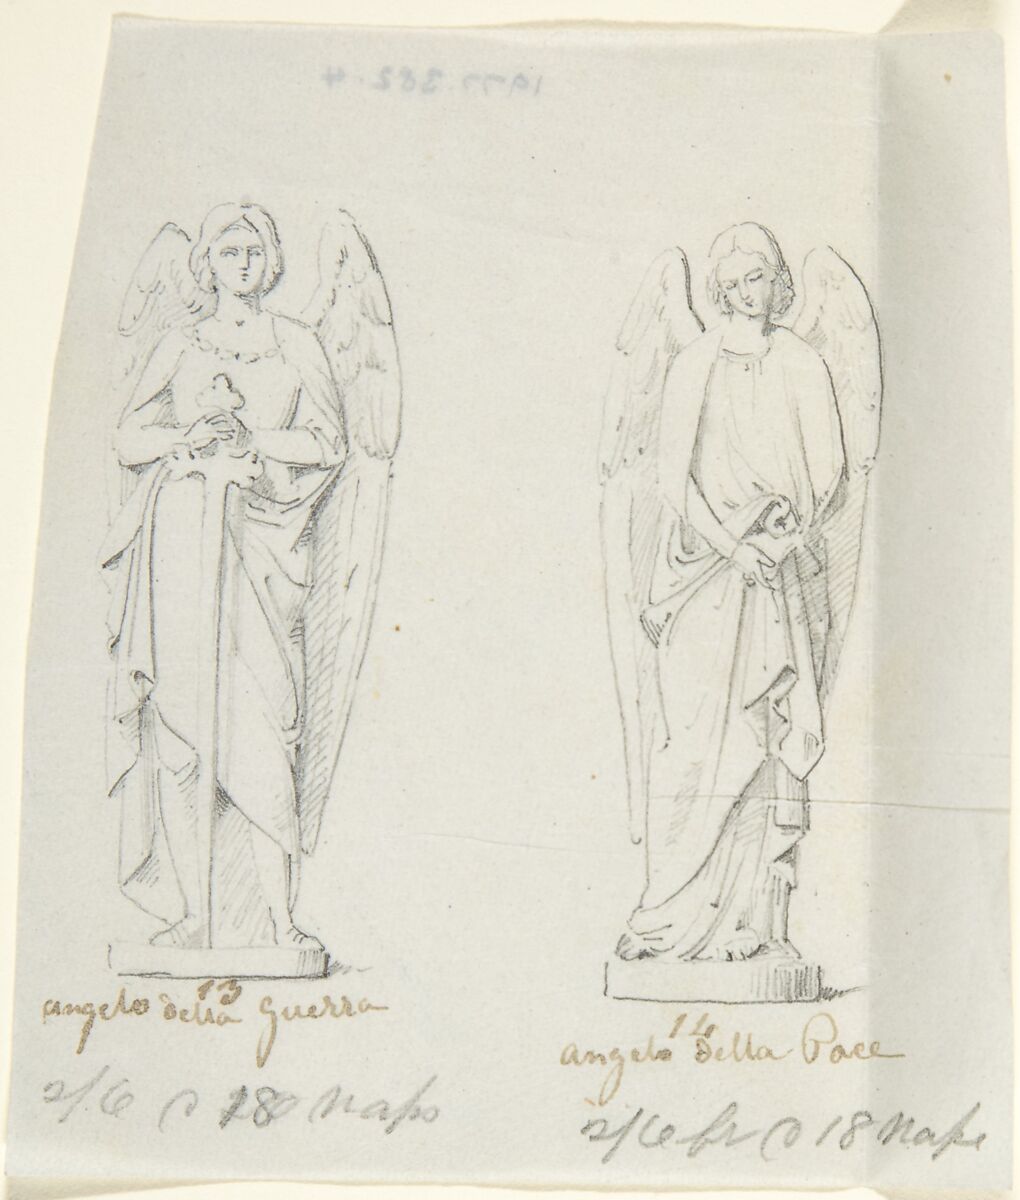 1977.382.4
13
angelo della Guerra
14
angelo della Pace
2/6 180 Naps
2/6 fr 18 Naps